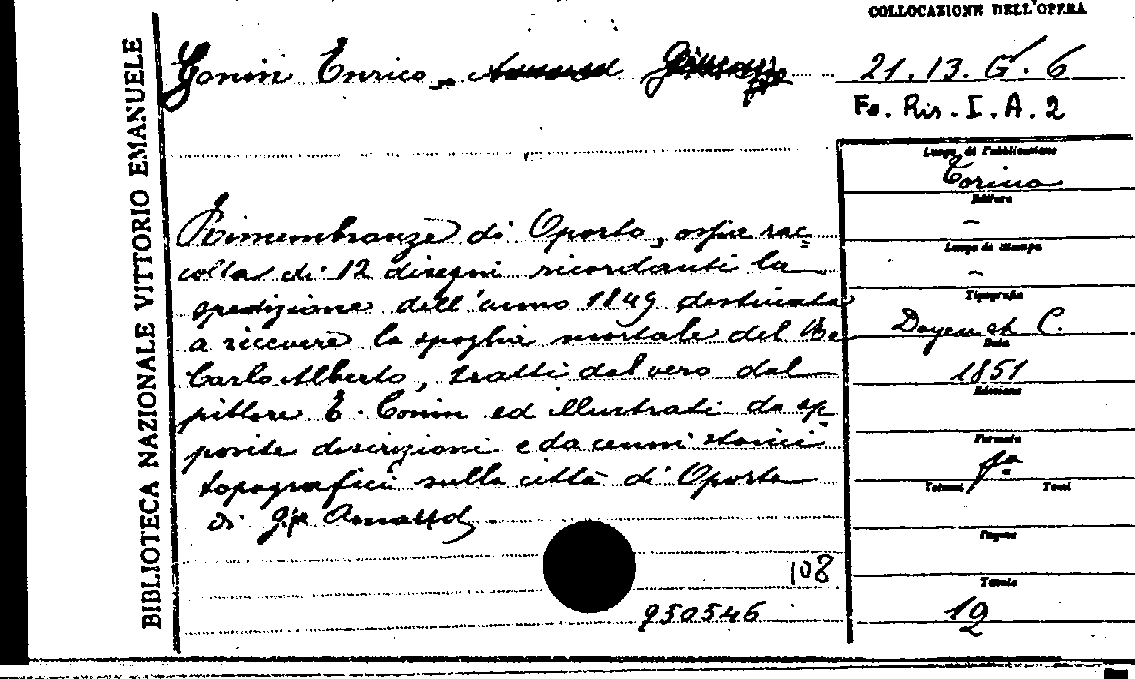 COLLOCAZIONE DELL'OPERA
Gonin Enrico
21.13.G.6
Fo. Ris. I. A. 2
BIBLIOTECA NAZIONALE VITTORIO EMANUELE
Rimembranze di Oporto, ossia rac=
colta di 12 disegni ricordanti la
spedizione dell'anno 1849 destinata
a ricevere la spoglia mortale del Re
Carlo Alberto, tratti dal vero dal
pittore E. Gonin ed illustrati da ap
posite descrizioni e da cenni storici
topografici sulla città di Oporto
di
108
950546
Luogo di Pubblicazione
Torino
Editore
-
Luogo di stampa
-
Tipografia
Doyen et C.
Data
1851
Edizione
Formato
fº
Volumi Tomi
Pagine
Tavole
12